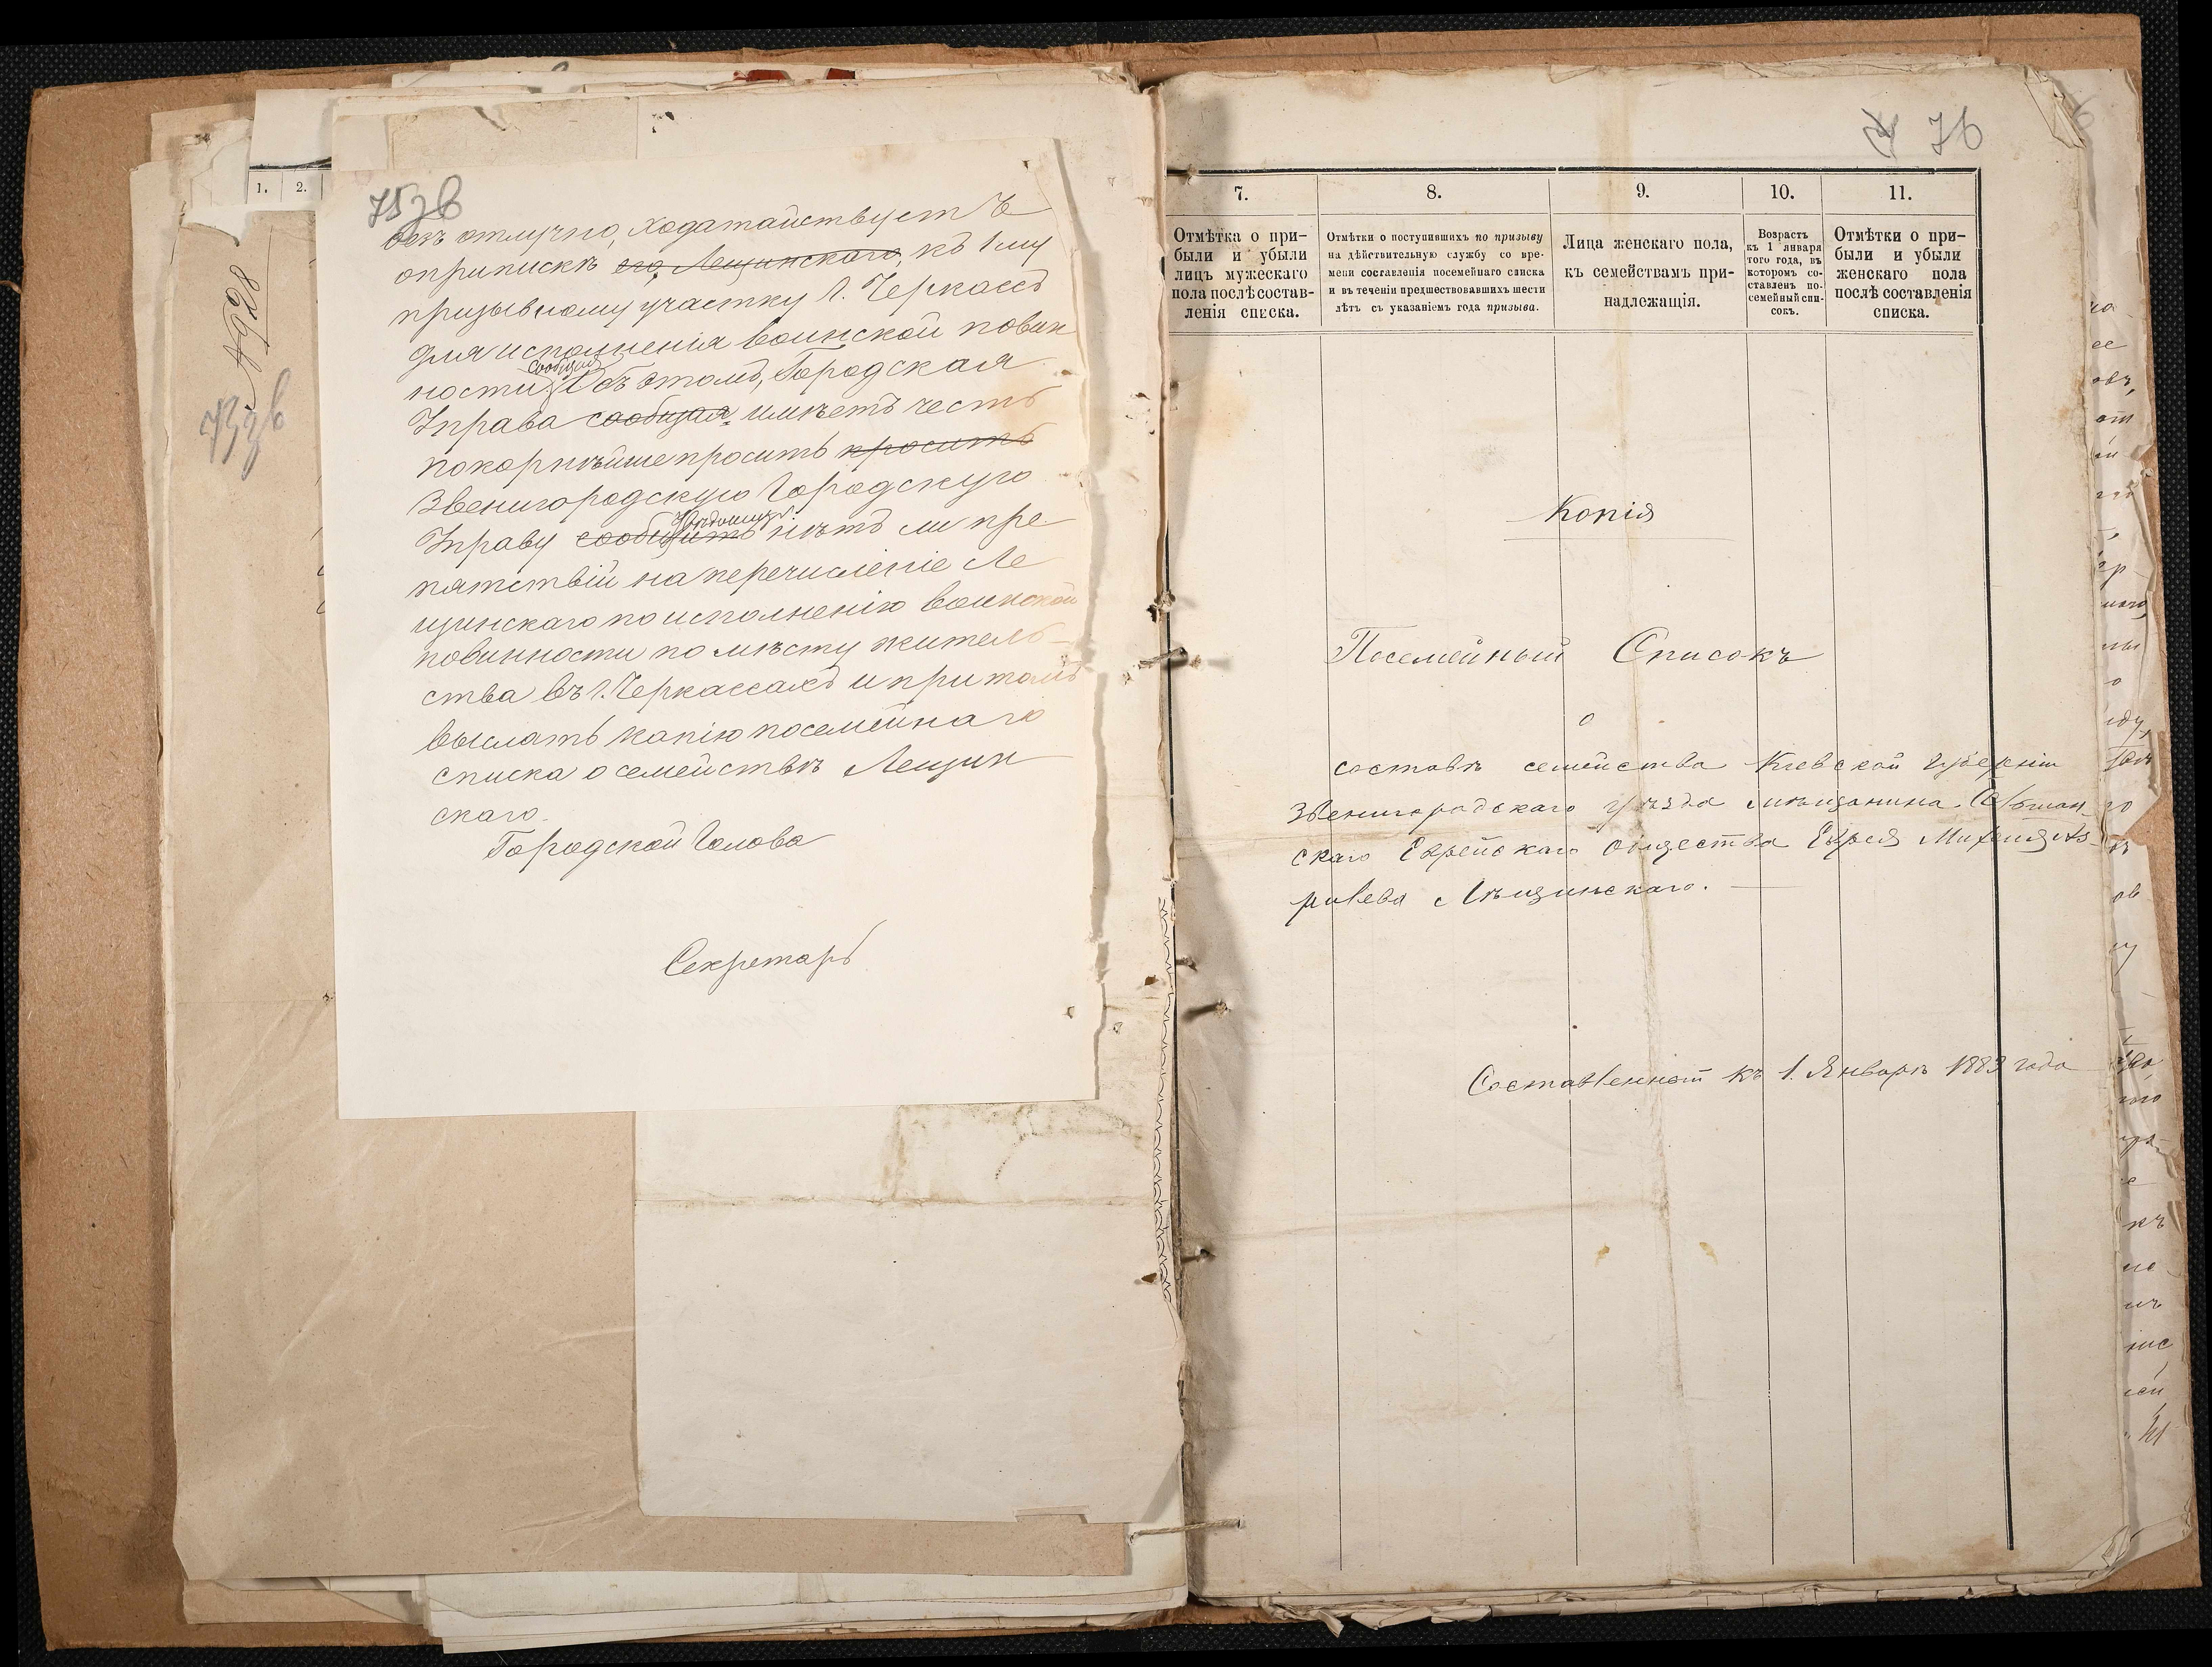 75зв
безъ отлучно, ходатайствуетъ
о припискѣ его, Лещинскаго, къ 1му
призывному участку г. Черкассъ
для исполненія воинской повин
ности. Сообщая Объ этомъ, Городская
Управа сообщая имѣетъ честь
покорнѣйше просить просить
Звенигородскую Городскую
Управу сообщить увѣдомить нѣтъ ли пре
пятствій на перечисленіе Ле
щинскаго по исполненію воинской
повинности по мѣсту житель-
ства въ г. Черкассахъ и притомъ
выслать копію посемейнаго
списка о семействѣ Лещин
скаго.
Городской Голова
Секретарь
73зв
1. 2.
76
7. 8. 9. 10. 11.
Отмѣтка о при-
были и убыли
лицъ мужескаго
пола послѣ состав-
ленія списка.
Отмѣтки о поступившихъ по призыву
на дѣйствительную службу со вре-
мени составленія посемейнаго списка
и въ теченіи предшествовавшихъ шести
лѣтъ съ указаніемъ года призыва.
Лица женскаго пола,
къ семействамъ при-
надлежащія.
Возрастъ
къ 1 января
того года, въ
которомъ со-
ставленъ по-
семейный спи-
сокъ.
Отмѣтки о при-
были и убыли
женскаго пола
послѣ составленія
списка.
Копія
Посемейный Списокъ
о
составѣ семейства Кіевской губерніи
Звенигородскаго уѣзда мѣщанина
скаго Еврейскаго общества Еврея Михеля Аз-
риlева Лѣщинскаго.
Составленный къ 1. Январѣ 1883 года